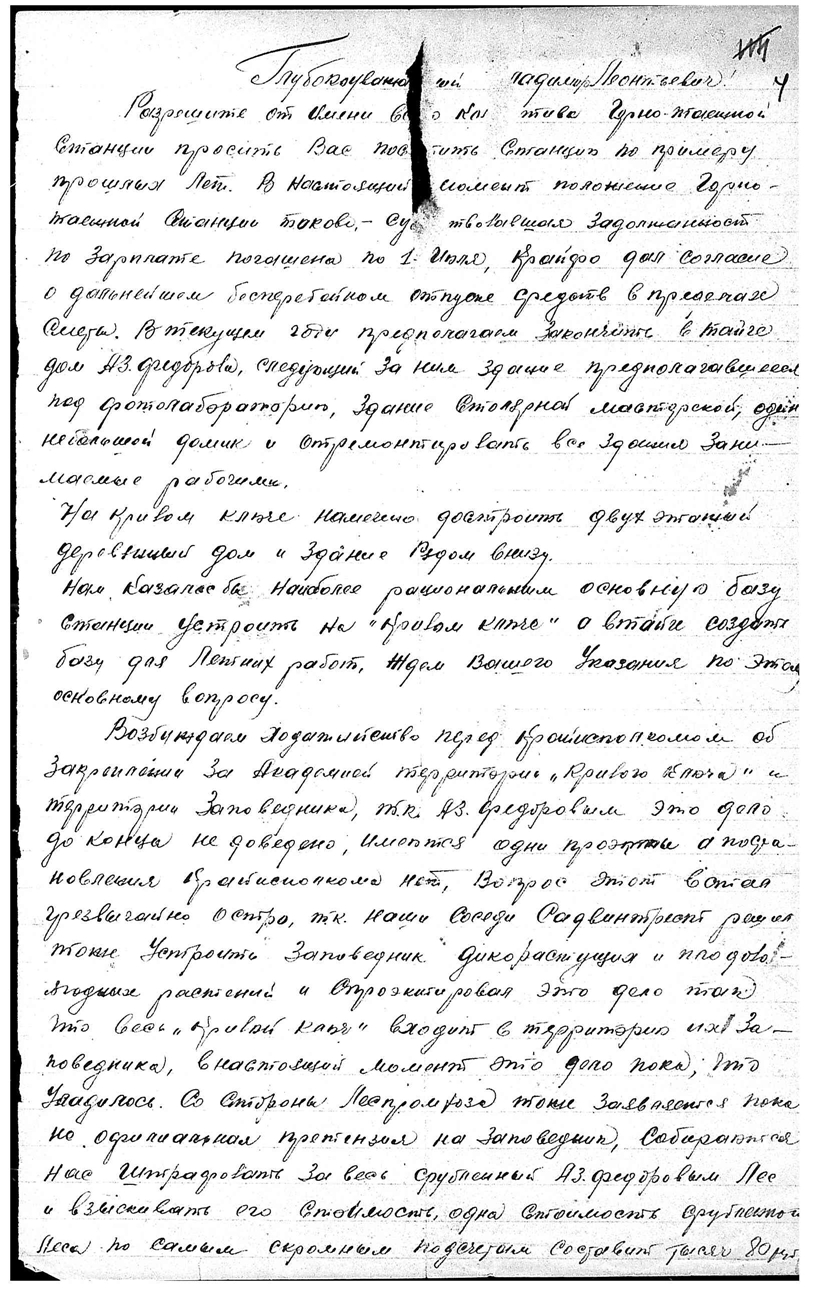 4
Глубокоуважа ый ладимир Леонтьевич!
Разрешите от имени вс о кол тива Горно-таежной
Станции просить Вас пос тить Станцию по примеру
прошлых лет. В настоящий момент положение Горно-
таежной Станции таково,- су твовавшая задолженност
по зарплате погашена по 1 Июля, Крайфо дал согласие
о дальнейшем бесперебойном отпуске средств в пределах
сметы. В текущем году предполагаем закончить в тайге
дом АЗ. Федорова, следующий за ним здание предполагавшееся
под фотолабораторию, здание столярной мастерской, один
небольшой домик и отремонтировать все здания зани-
маемые рабочими.
На кривом ключе намечено достроить двух этажный
деревянный дом и здание рядом внизу.
Нам казалось бы наиболее рациональным основную базу
станции устроить на "Кривом ключе" а в тайге создать
базу для летних работ, ждем Вашего указания по этом
основному вопросу.
Возбуждаем ходатайство перед Крайисполкомом об
закреплении за Академией территории „Кривого Ключа" и
территории Заповедника, т.к. АЗ. Федоровым это дело
до конца не доведено, имеются одни проэкты а поста-
новления Крайисполкома нет, Вопрос этот встал
чрезвычайно остро, т.к. наши соседи Садвинтрест решил
тоже устроить Заповедник дикорастущих и плодово-
ягодных растений и спроэктировал это дело так
что весь „Кривой ключ" входит в территорию их За-
поведника, в настоящий момент это дело пока, что
уладилось. Со стороны Леспромхоза тоже заявляется пока
не официальная претензия на Заповедник, собираются
нас штрафовать за весь срубленный АЗ. Федоровым лес
и взыскивать его стоимость, одна стоимость срубленной
леса по самым скромным подсчетам составит тысяч 80